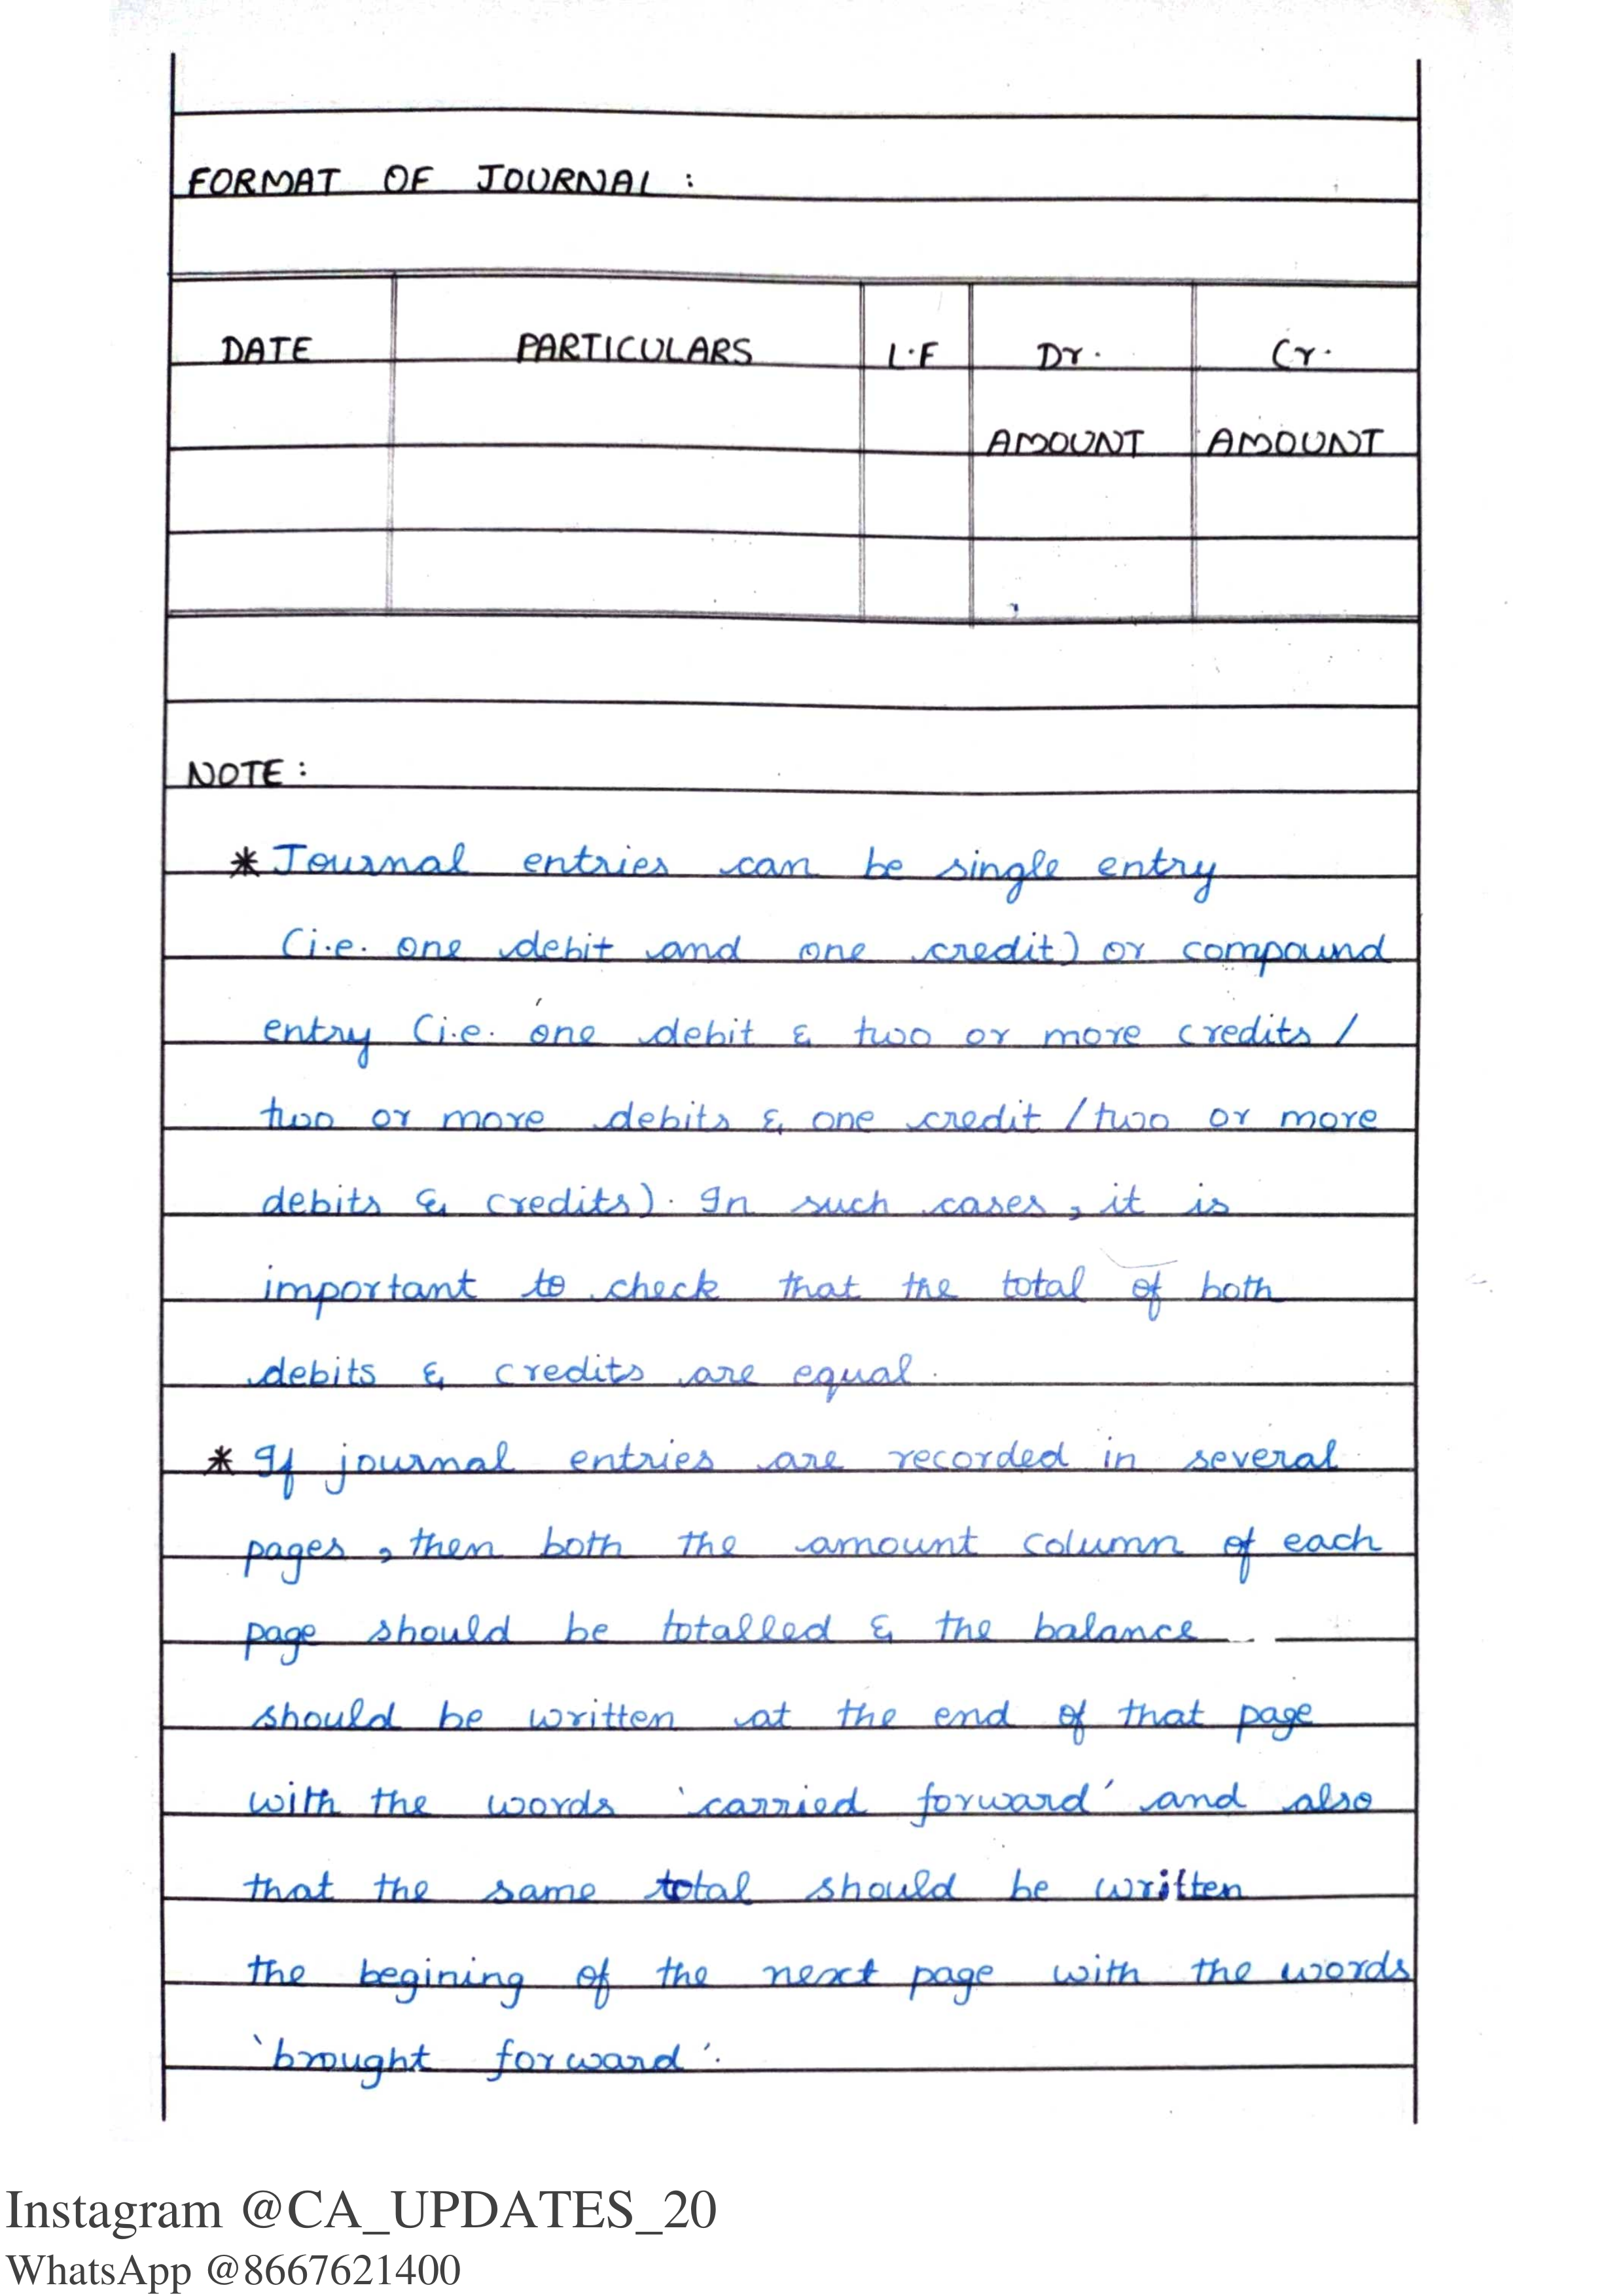 FORMAT OF JOURNAL :
DATE PARTICULARS L.F Dr. Cr.
AMOUNT AMOUNT
NOTE :
* Journal entries can be single entry
(i.e. one debit and one credit) or compound
entry (i.e. one debit & two or more credits /
two or more debits & one credit / two or more
debits & credits). In such cases, it is
important to check that the total of both
debits & credits are equal.
* If journal entries are recorded in several
pages, then both the amount column of each
page should be totalled & the balance
should be written at the end of that page
with the words 'carried forward' and also
that the same total should be written
the begining of the next page with the words
'brought forward'.
Instagram @CA_UPDATES_20
WhatsApp @8667621400